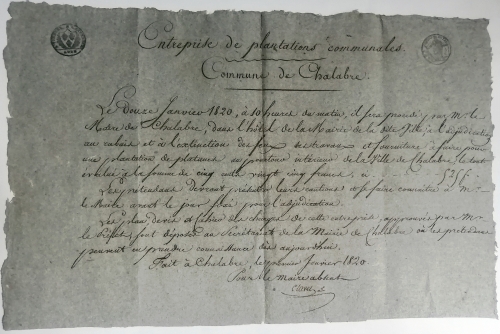 Entreprise de plantations communales.
Commune de Chalabre.
Le Douze Janvier 1820, à 10 heures du matin, il sera procédé par Mr. le
Maire de Chalabre, dans l'hôtel de la Mairie de la dite Ville, à l'adjudication
au rabais et à l'extinction des feux des travaux et fourniture à faire pour
une plantation de platanes au pourtour intérieur de la Ville de Chalabre le tout
évalué à la somme de cinq cents vingt cinq francs, ci 525 ff.
Les prétendants devront présenter leurs cautions et se faire connaitre à Mr.
le Maire avant le jour fixé pour l'adjudication.
Les plan, devis et cahier des charges de cette entreprise, approuvés par Mr.
le Préfet, sont déposés au Secrétariat de la Mairie de Chalabre, où les prétendans
peuvent en prendre connaissance dès aujourd'hui.
Fait à Chalabre, le premier Janvier 1820.
Pour le maire absent